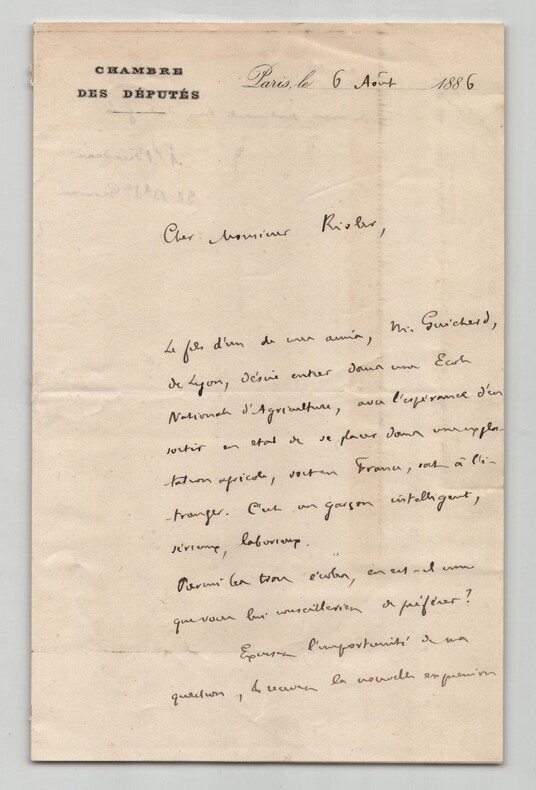 CHAMBRE
DES DÉPUTÉS
Paris, le 6 Août 1886
Cher Monsieur Risler,
Le fils d'un de mes amis, M. Guichard,
de Lyon, désire entrer dans une Ecole
Nationale d'Agriculture, avec l'espérance d'en
sortir en état de se placer dans une exploi-
tation agricole, soit en France, soit à l'é-
tranger. C'est un garçon intelligent,
sérieux, laborieux.
Parmi les trois écoles, en est-il une
que vous lui conseilleriez de préférer?
Excusez l'importunité de ma
question, & recevez la nouvelle expression